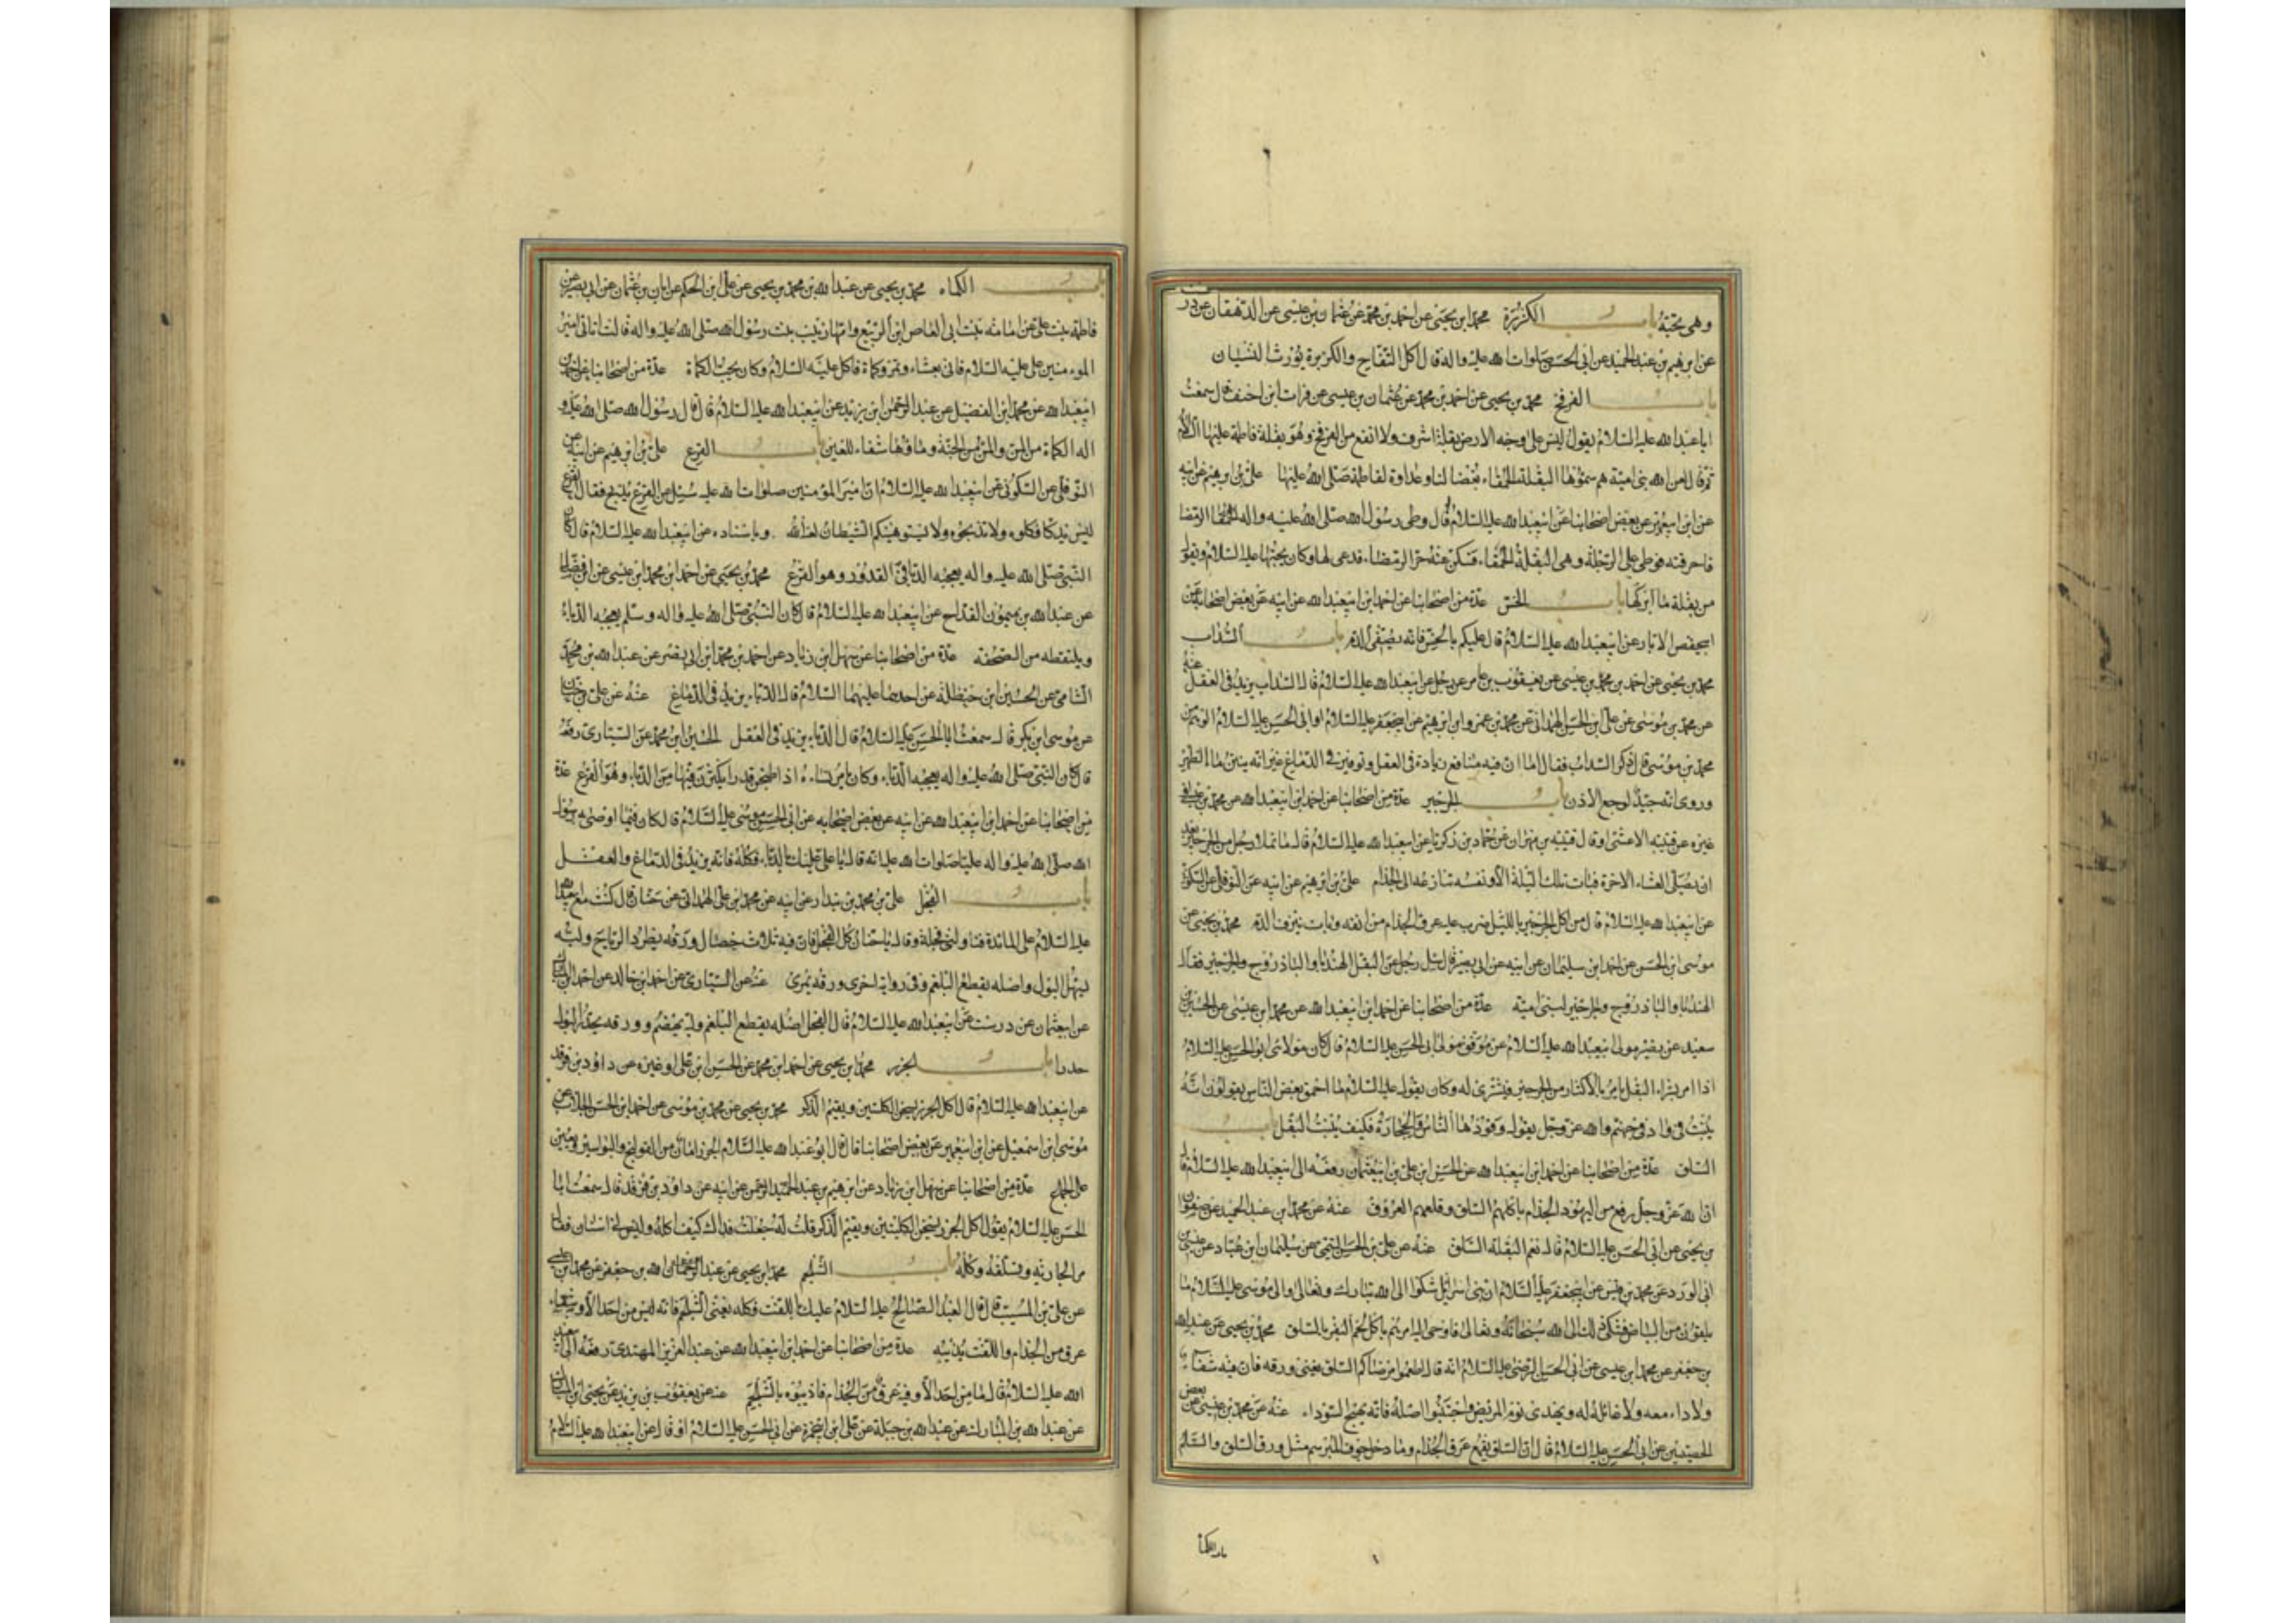 وهى محبّة باب الكزبرة محمد ابن يحيى عن احمد بن محمد عن عثمان بن عيسى عن الدهقان عن درست
عن ابرهيم بن عبد الحميد عن ابى الحسن صلوات الله عليه واله قال اكل التفاح والكزبرة يورث النسيان
باب الفرفخ محمد بن يحيى عن احمد بن محمد عن عثمان بن عيسى عن فرات ابن احنف قال سمعت
ابا عبد الله عليه السلام يقول ليس على وجه الارض بقلة اشرف ولا انفع من الفرفخ وهو بقلة فاطمة عليها السلام
ثم قال لعن الله بنى امية هم سموها البقلة الحمقاء بغضا لنا وعداوة لفاطمة صلى الله عليها على بن ابرهيم عن ابيه
عن ابن ابيعمير عن بعض اصحابنا عن ابيعبد الله عليه السلام قال وطى رسول الله صلى الله عليه واله الرمضا
فاحرقته فوطى على الرجلة وهى البقلة الحمقاء فسكن عنه حر الرمضاء فدعى لها وكان يحبها عليه السلام ويقول
من بقلة ما ابركها باب الخس عدة من اصحابنا عن احمد ابن ابيعبد الله عن ابيه عن بعض اصحابنا عن
ابيحفص الابار عن ابيعبد الله عليه السلام قال عليكم بالخس فانه يصفى الدم باب السداب
محمد بن يحيى عن احمد بن محمد بن عيسى عن يعقوب بن عامر عن رجل عن ابيعبد الله عليه السلام قال السداب يزيد فى العقل عنه
عن محمد بن موسى عن على ابن الحسن الهمدانى عن محمد بن عمرو ابن ابرهيم عن ابيجعفر عليه السلام او ابى الحسن عليه السلام الوهم من
محمد بن موسى قال ذكر السداب فقال اما ان فيه منافع زيادة فى العقل وتوفير فى الدماغ غير انه ينتن ماء الظهر
وروى انه جيد لوجع الاذن باب الجرجير عدة من اصحابنا عن احمد ابن ابيعبد الله عن محمد بن على او
غيره عن قتيبه الاعشى او قال قتيبه بن مهران عن حماد بن زكريا عن ابيعبد الله عليه السلام قال ما تملا رجل من الجرجير بعد
ان يصلى العشاء الاخرة فبات تلك الليلة الا ونفسه تنازعه الى الجذام على بن ابرهيم عن ابيه عن النوفلى عن السكونى
عن ابيعبد الله عليه السلام قال من اكل الجرجير بالليل ضرب عليه عرق الجذام من انفه وبات ينزف الدم محمد بن يحيى عن
موسى ابن الحسن عن احمد ابن سليمان عن ابيه عن ابى بصير قال سئل رجل عن البقل الهندبا والباذروج والجرجير فقال
الهندبا والباذروج لنا والجرجير لبنى امية عدة من اصحابنا عن احمد ابن ابيعبد الله عن محمد ابن عيسى عن الحسين بن
سعيد عن بصير مولى ابيعبد الله عليه السلام عن موفق مولى ابى الحسن عليه السلام قال كان مولاى ابو الحسن عليه السلام
اذا امر بشراء البقل يامر بالاكثار من الجرجير فيشترى له وكان يقول عليه السلام ما احمق بعض الناس يقولون انه
ينبت فى واد فى جهنم والله عز وجل يقول وقودها الناس والحجارة فكيف ينبت البقل باب
السلق عدة من اصحابنا عن احمد ابن ابيعبد الله عن الحسن ابن على بن ابيعثمان رفعه الى ابيعبد الله عليه السلام قال
ان الله عز وجل رفع من اليهود الجذام باكلهم السلق وقلعهم العروق عنه عن محمد ابن عبد الحميد عن صفوان
بن يحيى عن ابى الحسن عليه السلام قال نعم البقلة السلق عنه عن على بن الحسن التيمى عن سليمان ابن عباد عن عيسى بن
ابى الورد عن محمد بن قيس عن ابيجعفر عليه السلام ان بنى اسرائيل شكوا الى الله تبارك وتعالى والى موسى عليه السلام ما
يلقون من البياض فشكى ذلك الى الله سبحانه وتعالى فاوحى اليه مرهم باكل لحم البقر بالسلق محمد بن يحيى عن عبد الله
بن جعفر عن محمد ابن عيسى عن ابى الحسن الرضى عليه السلام انه قال اطعموا مرضاكم السلق يعنى ورقه فان فيه شفاء
ولا داء معه ولا غائلة له ويهدى نوم المريض واجتنبوا اصله فانه يهيج السوداء عنه عن محمد بن عيسى عن بعض
الحصينين عن ابى الحسن عليه السلام قال ان السلق يقمع عرق الجذام وما دخل جوف المبرسم مثل ورق السلق والسلم
باب الكماة
باب الكماه محمد بن يحيى عن عبد الله بن محمد بن يحيى عن على ابن الحكم عن ابان بن عثمان عن ابى بصير عن
فاطمة بنت على عن امامة بنت ابى العاص ابن الربيع وامها زينب بنت رسول الله صلى الله عليه واله قالت اتانى امير
الموءمنين على عليه السلام فاتى بعشاء وتمر وكماة فاكل عليه السلام وكان يحب الكماة عدة من اصحابنا عن احمد ابن
ابيعبد الله عن محمد ابن الفضيل عن عبد الرحمن ابن زيد عن ابيعبد الله عليه السلام قال قال رسول الله صلى الله عليه و
اله الكماة من المن والمن من الجنة وماؤها شفاء للعين باب القرع على بن ابرهيم عن ابيه عن
النوفلى عن السكونى عن ابيعبد الله عليه السلام ان امير المؤمنين صلوات الله عليه سئل عن القرع يذبح فقال القرع
ليس يذكا فكلوه ولا تذبحوه ولا يستهوينكم الشيطان لعنه الله وباسناده عن ابيعبد الله عليه السلام قال كان
النبى صلى الله عليه واله يعجبه الدبا فى القدور وهو القرع محمد بن يحيى عن احمد ابن محمد ابن عيسى عن ابن فضال
عن عبد الله بن ميمون القداح عن ابيعبد الله عليه السلام قال كان النبى صلى الله عليه واله وسلم يعجبه الدباء
ويلتقطه من الصحفة عدة من اصحابنا عن سهل ابن زياد عن احمد بن محمد ابن ابى نصر عن عبد الله بن محمد
الشامى عن الحسين ابن حنظلة عن احدهما عليهما السلام قال الدباء يزيد فى الدماغ عنه عن على بن حسان
عن موسى ابن بكر قال سمعت ابا الحسن عليه السلام قال الدباء يزيد فى العقل الحسين ابن محمد عن السيارى رفعه
قال كان النبى صلى الله عليه واله يعجبه الدباء وكان يامر نساءه اذا طبخن قدرا يكثرن فيها من الدباء وهو القرع عدة
من اصحابنا عن احمد ابن ابيعبد الله عن ابيه عن بعض اصحابه عن ابى الحسن موسى عليه السلام قال كان فيما اوصى به رسول
الله صلى الله عليه واله عليا صلوات الله عليه انه قال يا على عليك بالدباء فكله فانه يزيد فى الدماغ والعقل
باب الفجل على بن محمد بن بندار عن ابيه عن محمد ابن على الهمدانى عن حنان قال كنت مع ابيعبد الله
عليه السلام على المائدة فناولنى فجلة وقال يا حنان كل الفجل فان فيه ثلاث خصال ورقه يطرد الرياح ولبه
يسهل البول واصله يقطع البلغم وفى رواية اخرى ورقه يمرى عنه عن السيارى عن احمد ابن خالد عن احمد ابن المبارك
عن ابيعثمان عن درست عن ابيعبد الله عليه السلام قال الفجل اصله يقطع البلغم ولبه يهضم وورقه يحدر البول
حدرا باب الجزر محمد ابن يحيى عن احمد ابن محمد عن الحسن ابن على او غيره عن داود بن فرقد
عن ابيعبد الله عليه السلام قال اكل الجزر يسخن الكليتين ويقيم الذكر محمد بن يحيى عن محمد بن موسى عن احمد ابن الحسن الجلاب عن
موسى ابن اسمعيل عن ابن ابيعمير عن بعض اصحابنا قال قال ابو عبد الله عليه السلام الجزر امان من القولنج والبواسير ويعين
على الجماع عدة من اصحابنا عن سهل ابن زياد عن ابرهيم بن عبد الرحمن عن ابيه عن داود بن فرقد قال سمعت ابا
الحسن عليه السلام يقول اكل الجزر يسخن الكليتين ويقيم الذكر قلت له جعلت فداك كيف اكله وليس لى اسنان فقال
مر الجارية تسلقه وكله باب الشلجم محمد ابن يحيى عن عبد الله بن جعفر عن محمد ابن
عن على بن المسيب قال قال العبد الصالح عليه السلام عليك باللفت فكله يعنى الشلجم فانه ليس من احد الا وبه
عرق من الجذام واللفت يذيبه عدة من اصحابنا عن احمد ابن ابيعبد الله عن عبد العزيز المهتدى رفعه الى ابيعبد
الله عليه السلام قال ما من احد الا وفيه عرق من الجذام فاذيبوه بالشلجم عنه عن يعقوب بن يزيد عن يحيى ابن المبارك
عن عبد الله بن المبارك عن عبد الله بن جبلة عن على ابن ابيحمزة عن ابى الحسن عليه السلام او قال عن ابيعبد الله عليه السلام